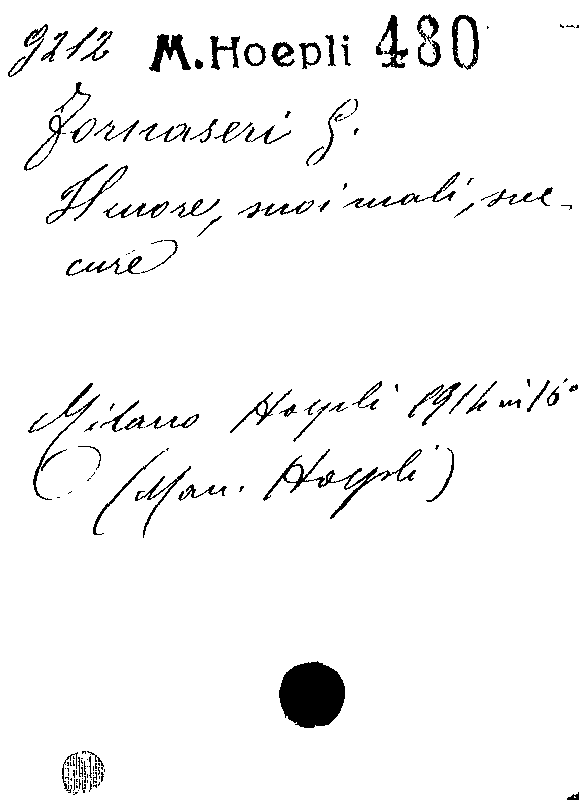 9212 M. Hoepli 480
Fornaseri G.
Il cuore, suoi mali, sue
cure
Milano Hoepli 1914 in 16°
(Man. Hoepli)